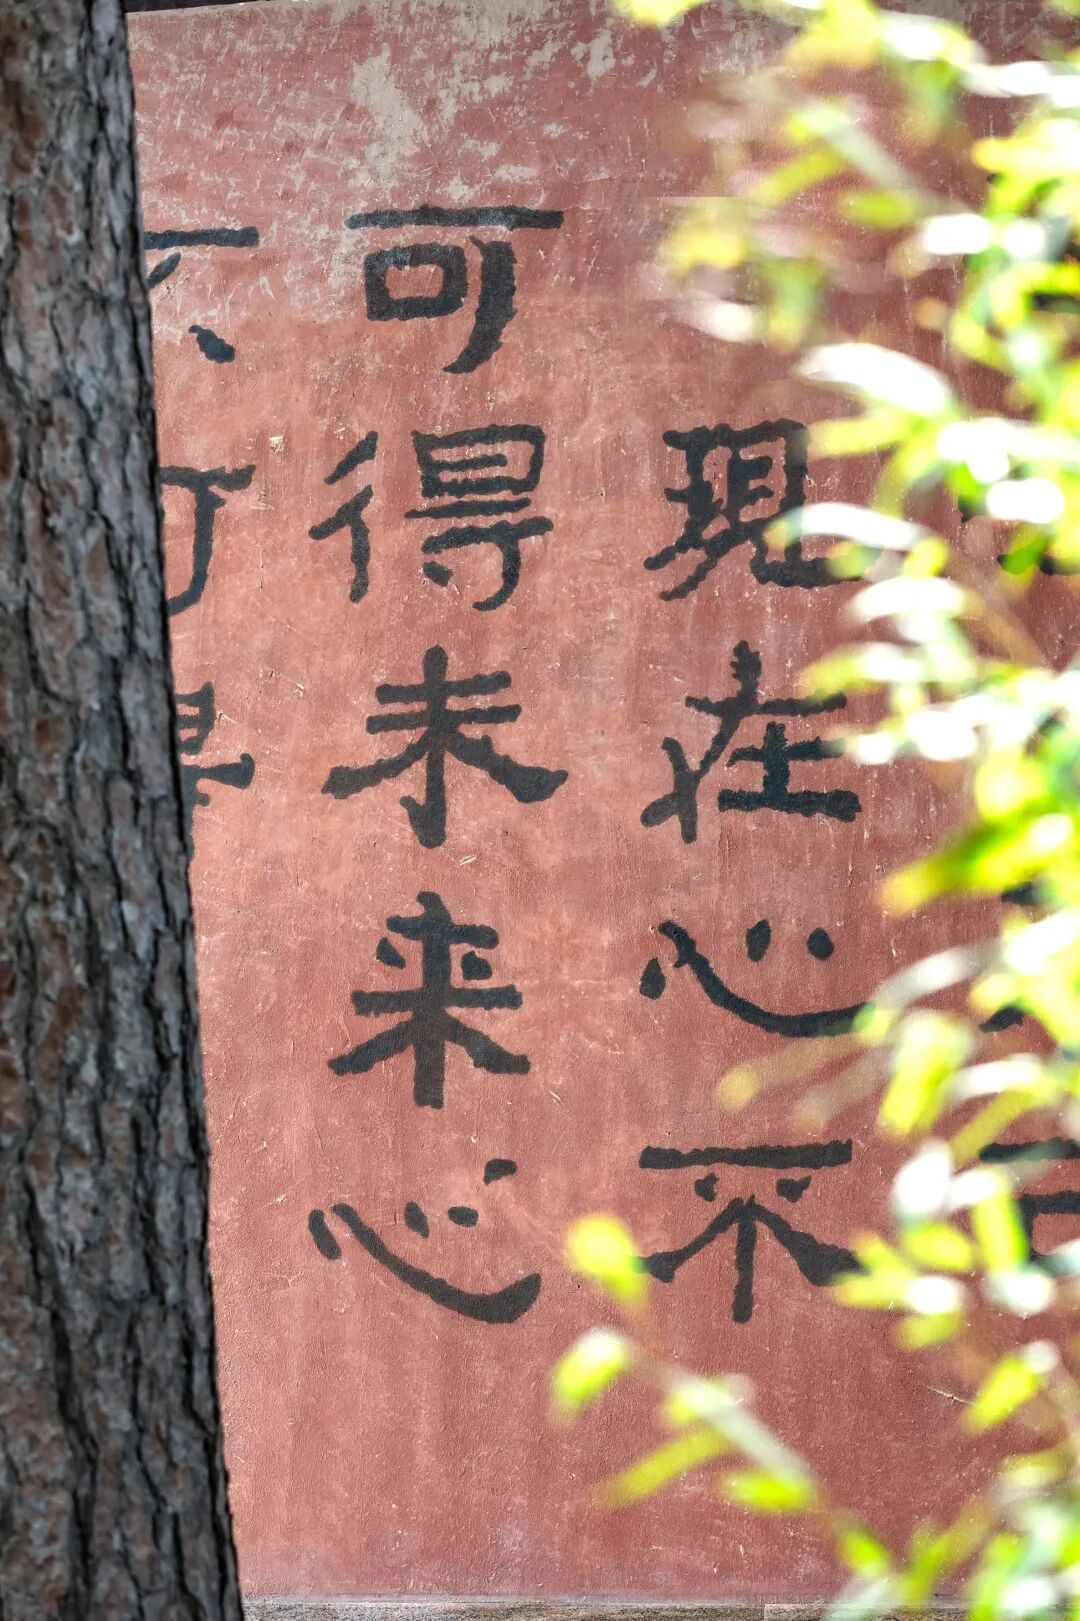 現在心不
可得未来心
不可得